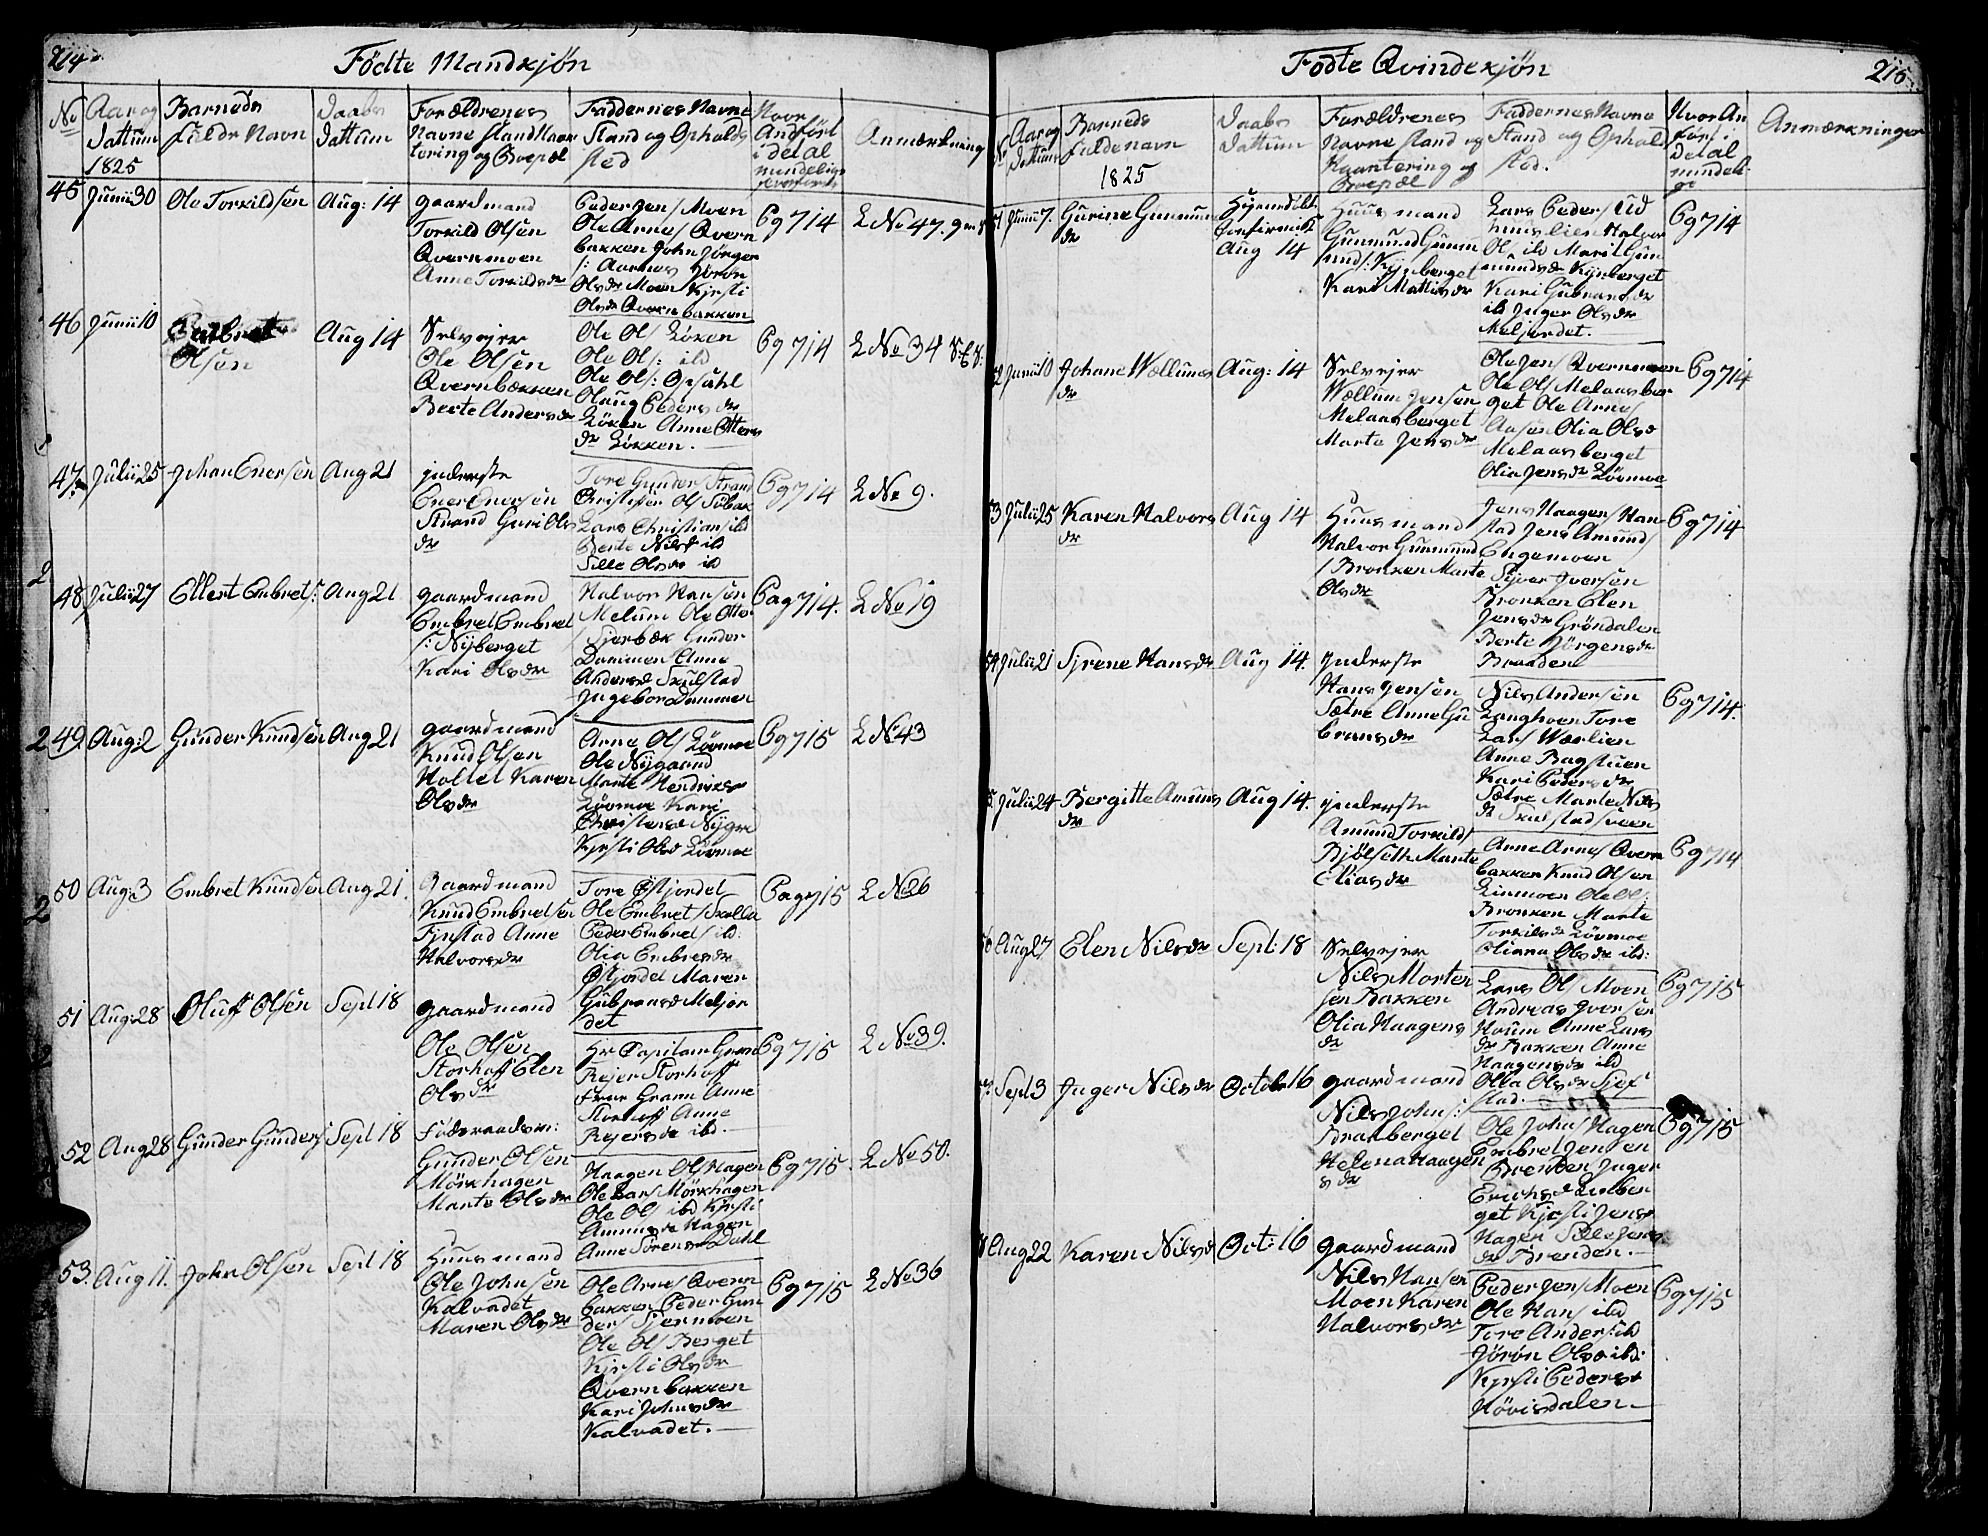 214
Födte Mandkjön
No
Aar og
Dattum
1825
Barneds
fulde Navn
Daabs
Dattum
Forældrenes
Navne Stand Haan
tering og Boepæl
Faddernes Navne
Stand og Opholds
sted
Hvor
Andfört
i det al
mindelige
Anmærkning
45
Junii 30
Ole Torkildsen
Aug: 14
gaardmand
Torkild Olsen
Qvernmoen
Anne Torkildsdr
Peder Jens/ Moen
Ole Arnes/ Qvern
bakken John Jörgen
/: Aarnes Jörön
Olsdr Moen Kjrsti
Olsdr Qvernbakken
Pg 714
L No 47.
46
Junii 10
Olsen
Aug 14
Selvejer
Ole Olsen
Qvernbækken
Berte Andersdr
Ole Ols/ Löken
Ole Ols: ibd
Ole Ols: Opsahl
Olaug Pedersdr
Löken Anne Otters
dr Lökken.
Pg 714
L No 34
47
Julii 25
Johan Enersen
Aug 21
jnderste
Ener Enersen
Strand Guri Ols
dr
Tore Gunders/ Strand
Christofer Ols/ Söbak
Lars Christians/ ibd
Berte Nilsd ibd
Sille Olsdr ibd
Pg 714
L No 9.
48
Julii 27
Ellert Embrets:
Aug 21
gaardmand
Embret Embret
/: Nyberget
Kari Olsdr
Halvor Hansen
Melum Ole Otter
/ Sjerbæk Gunder
Dammen Anne
Andersd Skulstad
Jngebor Dammen
Pag 714.
L No 19
49
Aug: 2
Gunder Knudsen
Aug 21
gaardmand
Knud Olsen
Holtet Karen
Olsdr
Arne Ols/ Lövmoe
Ole Nygaard
Marte Hendriks
Lövmoe Kari
Christensd Nygrd
Kjrsti Olsd Lövmoe
Pg 715
L No 43
50
Aug: 3
Embret Knudsen
Aug 21
Gaardmand
Knud Embretsen
Fjnstad Anne
Halvorsdr
Tore Östjordet
Ole Embret/ Skolla
Peder Embrets/ ibd:
Olia Embresdr
Östjordet Maren
Gubransd Meljor
det
Pag 715
L No 26
51
Aug: 28
Oluff Olsen
Sept 18
gaardmand
Ole Olsen
Storhoff Elen
Olsdr
Hr Capitain Gram
Rejer Storhoff
Frue Gram Anne
Storhoff Anne
Rejersdr ibd.
Pg 715
L No 39.
52
Aug 28
Gunder Gunders/
Sept 18
Föderaadsm:
Gunder Olsen
Mörkhagen
Marte Olsdr
Haagen Ols/ Hagen
Ole Lars/ Mörkhagen
Ole Ols/ ibd Kjrsti
Ammundsdr Hagen
Anne Sörensdr Dahl
Pg 715.
L No 50.
53.
Aug 11.
John Olsen
Sept 18
Huusmand
Ole Johnsen
Kalvadet
Maren Olsdr
Ole Arnes/ Qvern
bakken Peder Gun
ders/ Sjermoen
Ole Ols/ Berget
Kjrsti Olsdr
Qvernbakken
Kari Johnsdr
Kalvadet.
Pg 715
L No 36
215
Födte Qvindekjön
No
Aar og
Dattum
Barneds
fulde navn
1825
Daabs
Dattum
Forældrenes
Navne Stand og
Haantering og
Boepæl
Faddernes Navne
Stand og Ophold
sted.
Hvor An
fört i
det al
mindeli
ge
Anmærkninger
51
Junii 7.
Gurine Gunmuns
dr
Hjemdöbt
Confirmert
Aug 14
Huusmand
Gunmund Gunm
mund/: Kjnberget
Kari Mattisdr
Lars Peders/ Ud
huuslien Halvor
Ols/ ibd Marit Gun
mundsdr Kjnberget
Kari Gubransdr
ibd Jnger Olsdr
Meljordet.
Pg 714
52
Junii 10
Johane Wællums
dr
Aug: 14
Selvejer
Wællum Jensen
Melaasberget
Marte Jensdr
Ole Jens/ Qvernmoen
Ole Ols/ Melaasber
get Ole Arnes/
Aasen Olia Olsdr
Melaasberget
Olia Jensdr Lövmoe
Pg 714
53
Julii 25
Karen Halvors
dr
Aug 14
Huusmand
Halvor Gunmund
/ Bronken Marte
Olsdr
Jens Haagens/ Han
stad Jens Amund/
Engemoen
Syver Jversen
Bronken Elen
Jensdr Gröndalen
Berte Jörgensdr
Braaden
Pg 714
54
Julii 21
Sjrene Hansdr
Aug 14.
Jnderste
Hans Jensen
Sætre Anne Gu
bransdr
Nils Andersen
Langhoen Tore
Lars/ Wærlien
Anne Bagstuen
Kari Pedersdr
Sætre Marte Nils
dr Skulstadsveen
Pg 714.
55
Julii 24
Bergitte Amuns
dr
Aug 14.
jnderste
Amund Torkild/
Bjölseth Marte
Eliasdr
Arne Arnes/ Qvern
bakken Knud Olsen
Linmoen Ole Ols/
Bronken Marte
Torkilsdr Lövmoe
Oliana Olsdr ibd:
Pg 714
56
Aug 27
Elen Nilsdr
Sept: 18
Selvejer
Nils Morten
sen Bakken
Olia Haagens
dr
Lars Ols/ Moen
Andreas Jversen
Houm Anne Lars
dr Bakken Anne
Haagensdr ibd
Olia Olsdr Sjef
stad.
Pg 715
57
Sept 3
Jnger Nilsdr
Octob 16
gaardmand
Nils Johns:
Braaberget
Helena Haagen
sdr
Ole Johns/ Hagen
Embret Jensen
Brenden Jnger
Erichsd Lutber
get Kjrsti Jens
Hagen Sille Jens
dr Brenden.
Pg 715
58
Aug 22
Karen Nilsd
Oct: 16
gaardmand
Nils Hansen
Moen Karen
Halvorsdr
Peder Jens/ Moen
Ole Hans/ ibd
Tore Anders: ibd
Jörön Olsd ibd:
Kjrsti Pedersd
Hövisdalen.
Pg 715